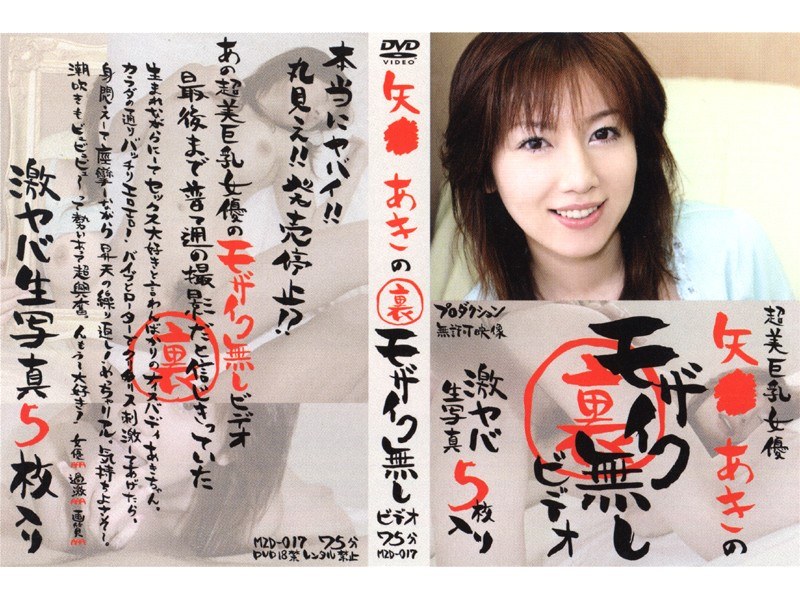 本当にヤバイ!!
丸見え!!発売停止!?
あの超美巨乳女優のモザイク無しビデオ
最後まで普通の撮影だと信じきっていた
裏
生まれながらにしてセックス大好きと言わんばかりのナイスバディあきちゃん。
カラダの通りバッチリエロエロ!バイブとローターでクリトリス刺激してあげたら、
身悶えして痙攣しながら昇天の繰り返し!めっちゃリアル、気持ちよさそ〜。
潮吹きもビュビュビュ〜って勢いあって超興奮、んもう〜大好き!
女優 過激 画質
激ヤバ生写真5枚入り
MZD-017 75分
DVD18禁 レンタル禁止
DVD
VIDEO
矢● あきの
裏
モザイク無し
ビデオ
75分
MZD-017
超美巨乳女優
矢● あきの
裏
モザイク無し
ビデオ
激ヤバ
生写真
5枚
入り
プロダクション
無許可映像